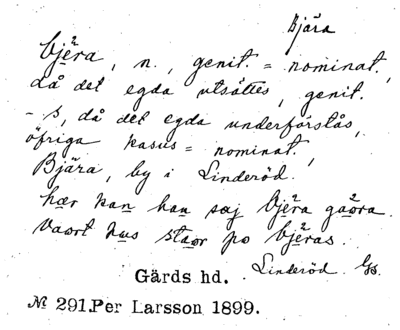 Bjära
bjéra, n., genit. = nominat.,
då det egda utsättes, genit.
-s, då det egda underförstås,
öfriga kasus = nominat.,
Bjära, by i Linderöd.
hær kan han saj bjéra gåora.
vaort hus staor po bjéras.
Linderöd. Gs.
Gärds hd.
№ 291. Per Larsson 1899.